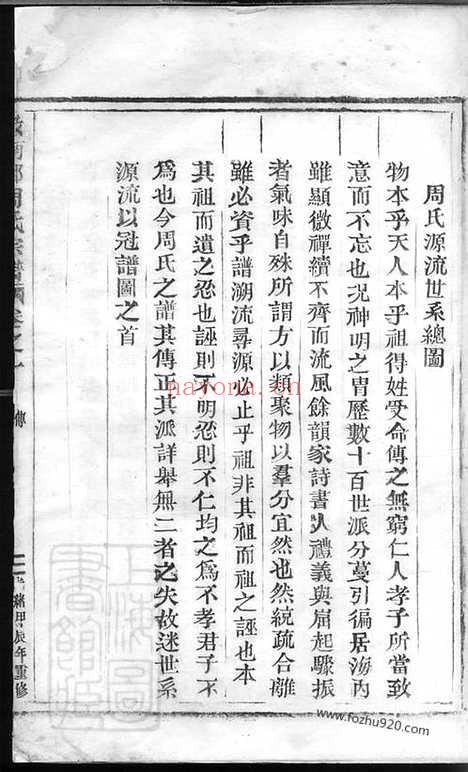 周氏源流世系總圖
物本乎天人本乎祖得姓受命傳之無窮仁人孝子所當致
意而不忘也况神明之胄歷數十百世派分蔓引徧居海内
雖顯微禪續不齊而流風餘韻家詩書人禮義與崛起驟振
者氣味自殊所謂方以類聚物以羣分宜然也然統疏合離
雖必資乎譜溯流尋源必止乎祖非其祖而祖之誣也本
其祖而遺之忍也誣則不明忍則不仁均之為不孝君子不
為也今周氏之譜其傳正其派詳舉無二者之失故述世系
源流以冠譜圖之首
周氏宗譜
傳
緒甲辰年重修
上海圖書館藏
nayona.cn
www.fozhu920.com